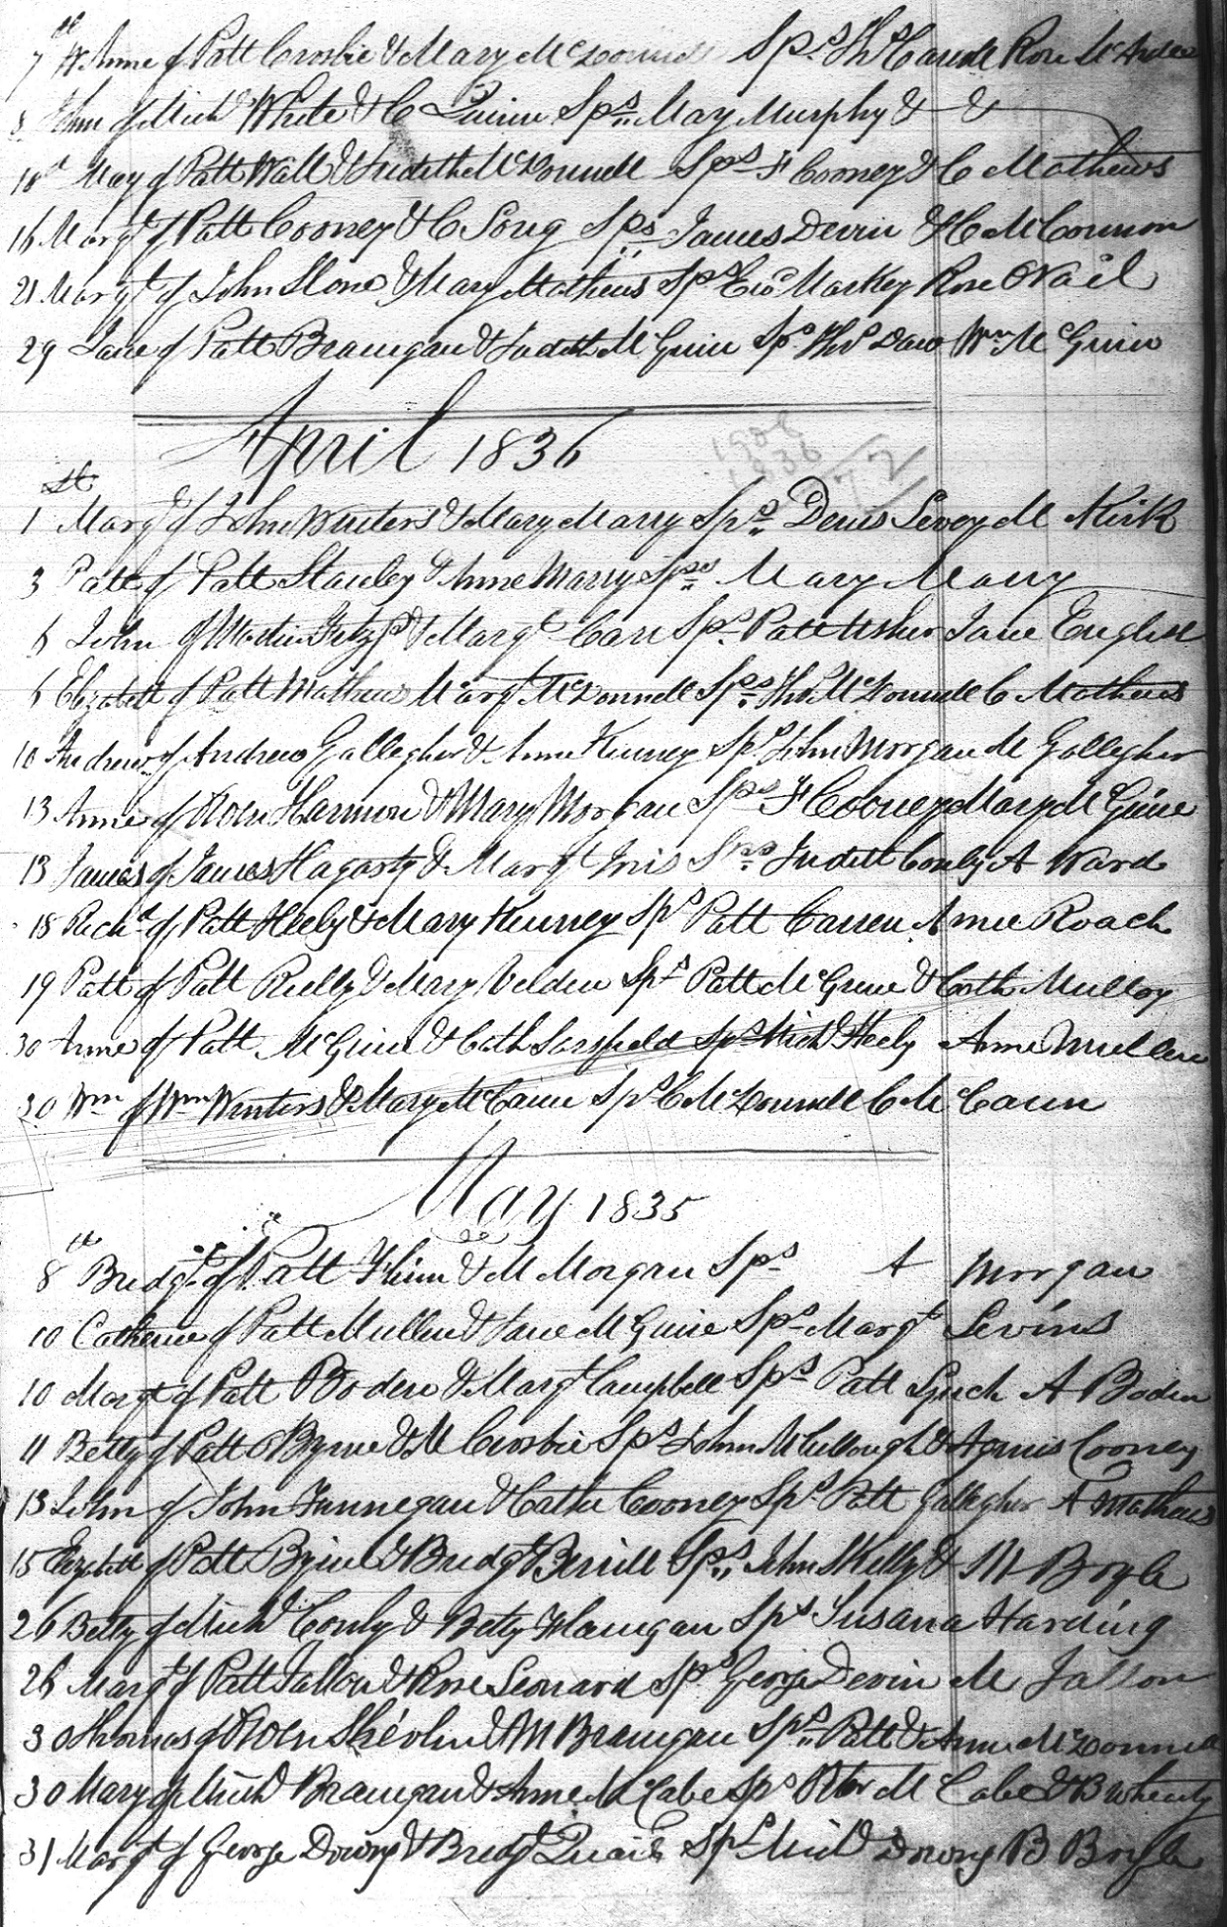 7th Anne of Patt Crosbie & Mary McDonnell Sps Ths Carroll Rose McArdle
8 John of Mich White & C Quinn Sps May Murphy & &
10th May of Patt Wall & Judith McDonnell Sps F Cooney & C Mathews
16 Margt of Patt Cooney & C Long Sps James Devin & C McConnon
21 Margt of John Slone & Mary Mathews Sps Markey Rose ONeil
29 Jane of Patt Branigan & Judith McGuin Sps Ths Daw Wm McGuin
April 1836
st
1 Margt of John Winters & Mary Marry Sps Denis Levey M Kirk
3 Patt of Patt Stanley & Anne Marry Sps Mary Marry
6 John of Martin Fitzpd & Margt Carr Sps Patt Usher Jane English
6 Elizabeth of Patt Mathews Margt McDonnell Sps Ths McDonnell C Mathews
10 Andrew of Andrew Gallegher & Anne Kinney Sps John Morgan M Gallegher
13 Anne of Owen Harmon & Mary Morgan Sps F Cooney Mary McGuire
13 James of James Hagarty & Margt Sps Judith Conly A Ward
18 Richd of Patt Heely & Mary Kinney Sps Patt Carren Anne Roach
19 Patt of Patt Reilly & Mary Velden Sps Patt McGuire & Cath Mulloy
30 Anne of Patt McGuire & Cath Sarsfield Sps Mich Heely Anne Mullen
30 Wm of Wm Winters & Mary McCann Sps C McDonnell C McCann
May 1835
th
8 Bridgt of Patt Flinn & M Morgan Sps A Morgan
10 Catherine of Patt Mullen & Jane McGuire Sps Margt Levins
10 Margt of Patt Boden & Margt Campbell Sps Patt Lynch A Boden
11 Betty of Patt Byrne & M Crosbie Sps John McCullough & Agnus Cooney
13 John of John Finnegan & Cathe Cooney Sps Patt Gallegher A Mathews
15 Elizabeth of Patt Byrne & Bridgt Berrill Sps John Skelly & M Boyle
26 Betty of Mich Conly & Betty Flanigan Sps Susana Harding
26 Margt of Patt Fallon & Rose Leonard Sps George Devin M Fallon
30 Thomas of Owen Shevlin & M Branigan Sps Patt & Anne McDonnell
30 Mary of Mich Branigan & Anne McCabe Sps Peter McCabe & B Wheaty
31 Margt of George Downy & Bridgt Quail Sps Mich Downy B Boyle